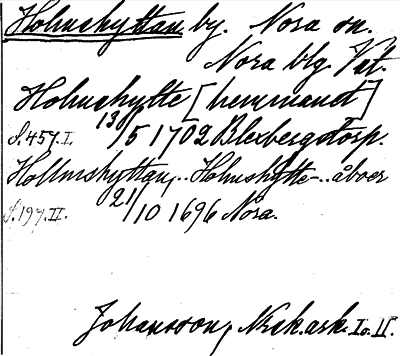 Holmshyttan by. Nora sn.
Nora blg. Vstl.
Holmshytte [hemmanet]
S. 457. I. 13/5 1702 Blexbergstorp.
Hollmshyttan, .. Holmshytte- .. åboer
S. 197. II. 21/10 1696 Nora.
Johansson, Nsk. ark. I o. II.